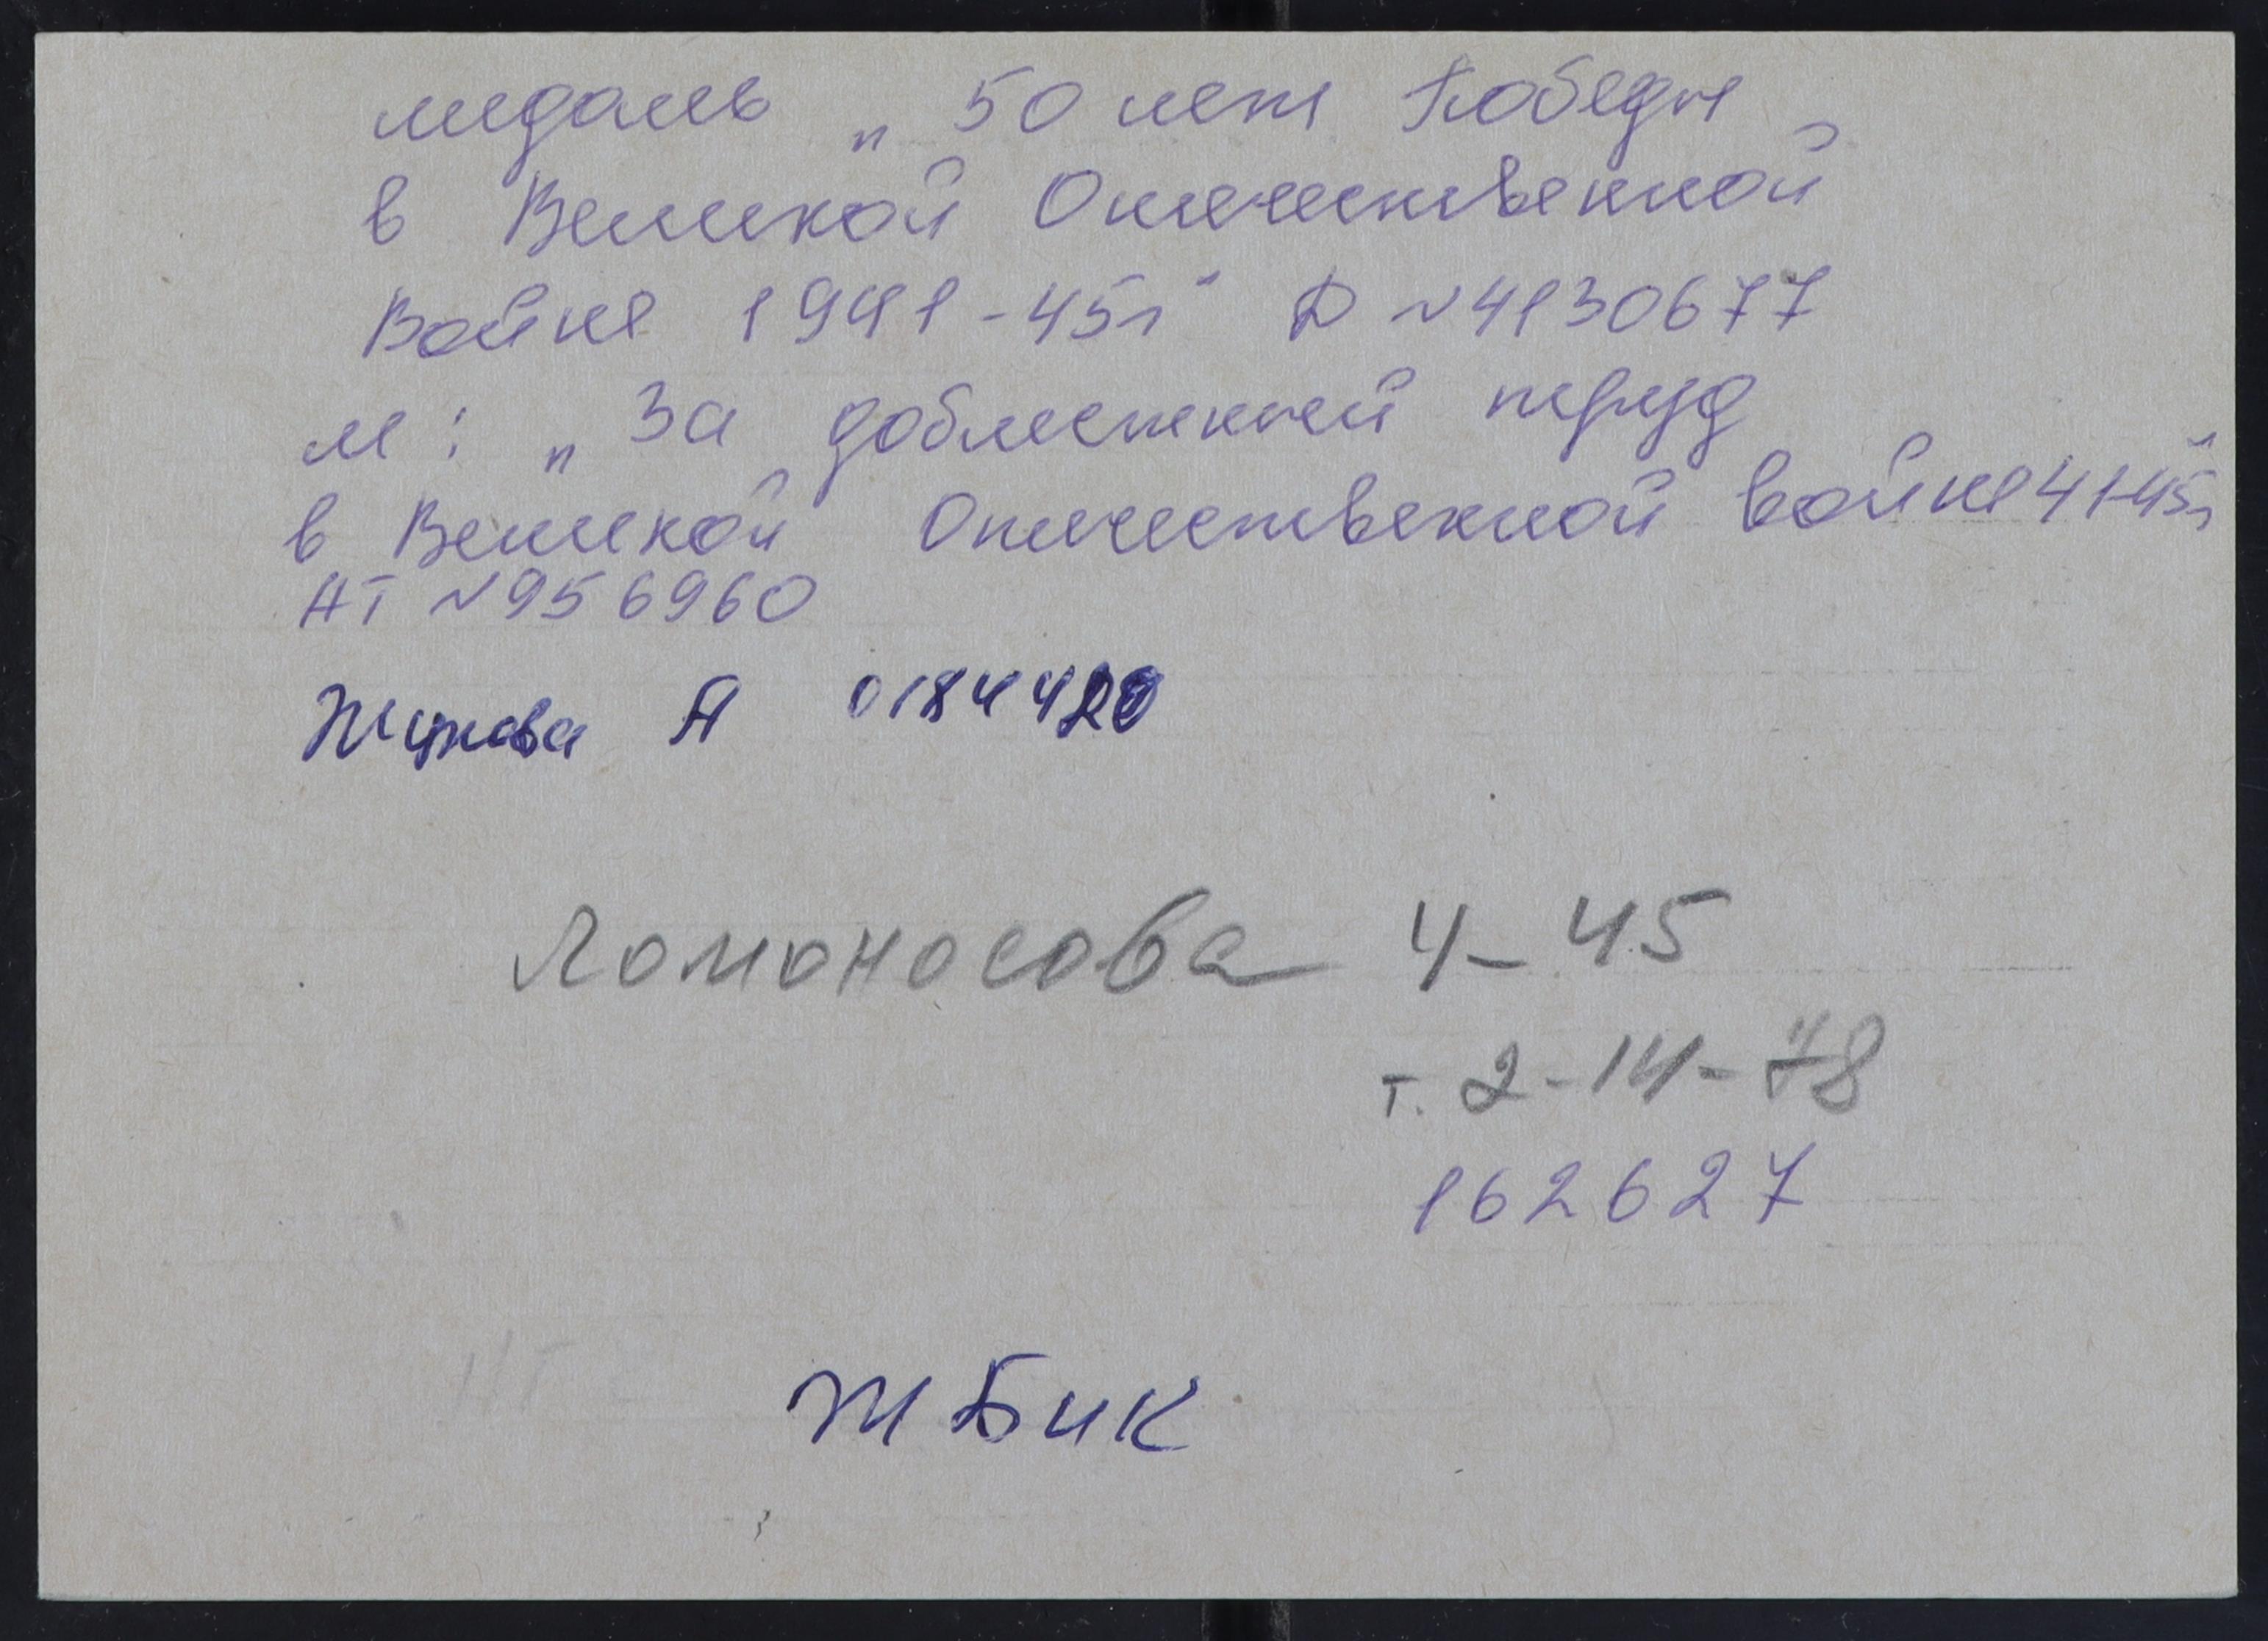 медаль „50 лет Победы
в Великой Отечественной
Войне 1941-45г" Д №4130677
м: „За доблестный труд
в Великой Отечественной войне 41-45г"
АТ №956960
Жукова А 0184420
Ломоносова 4-45
т. 2-14-78
162627
ЖБИК